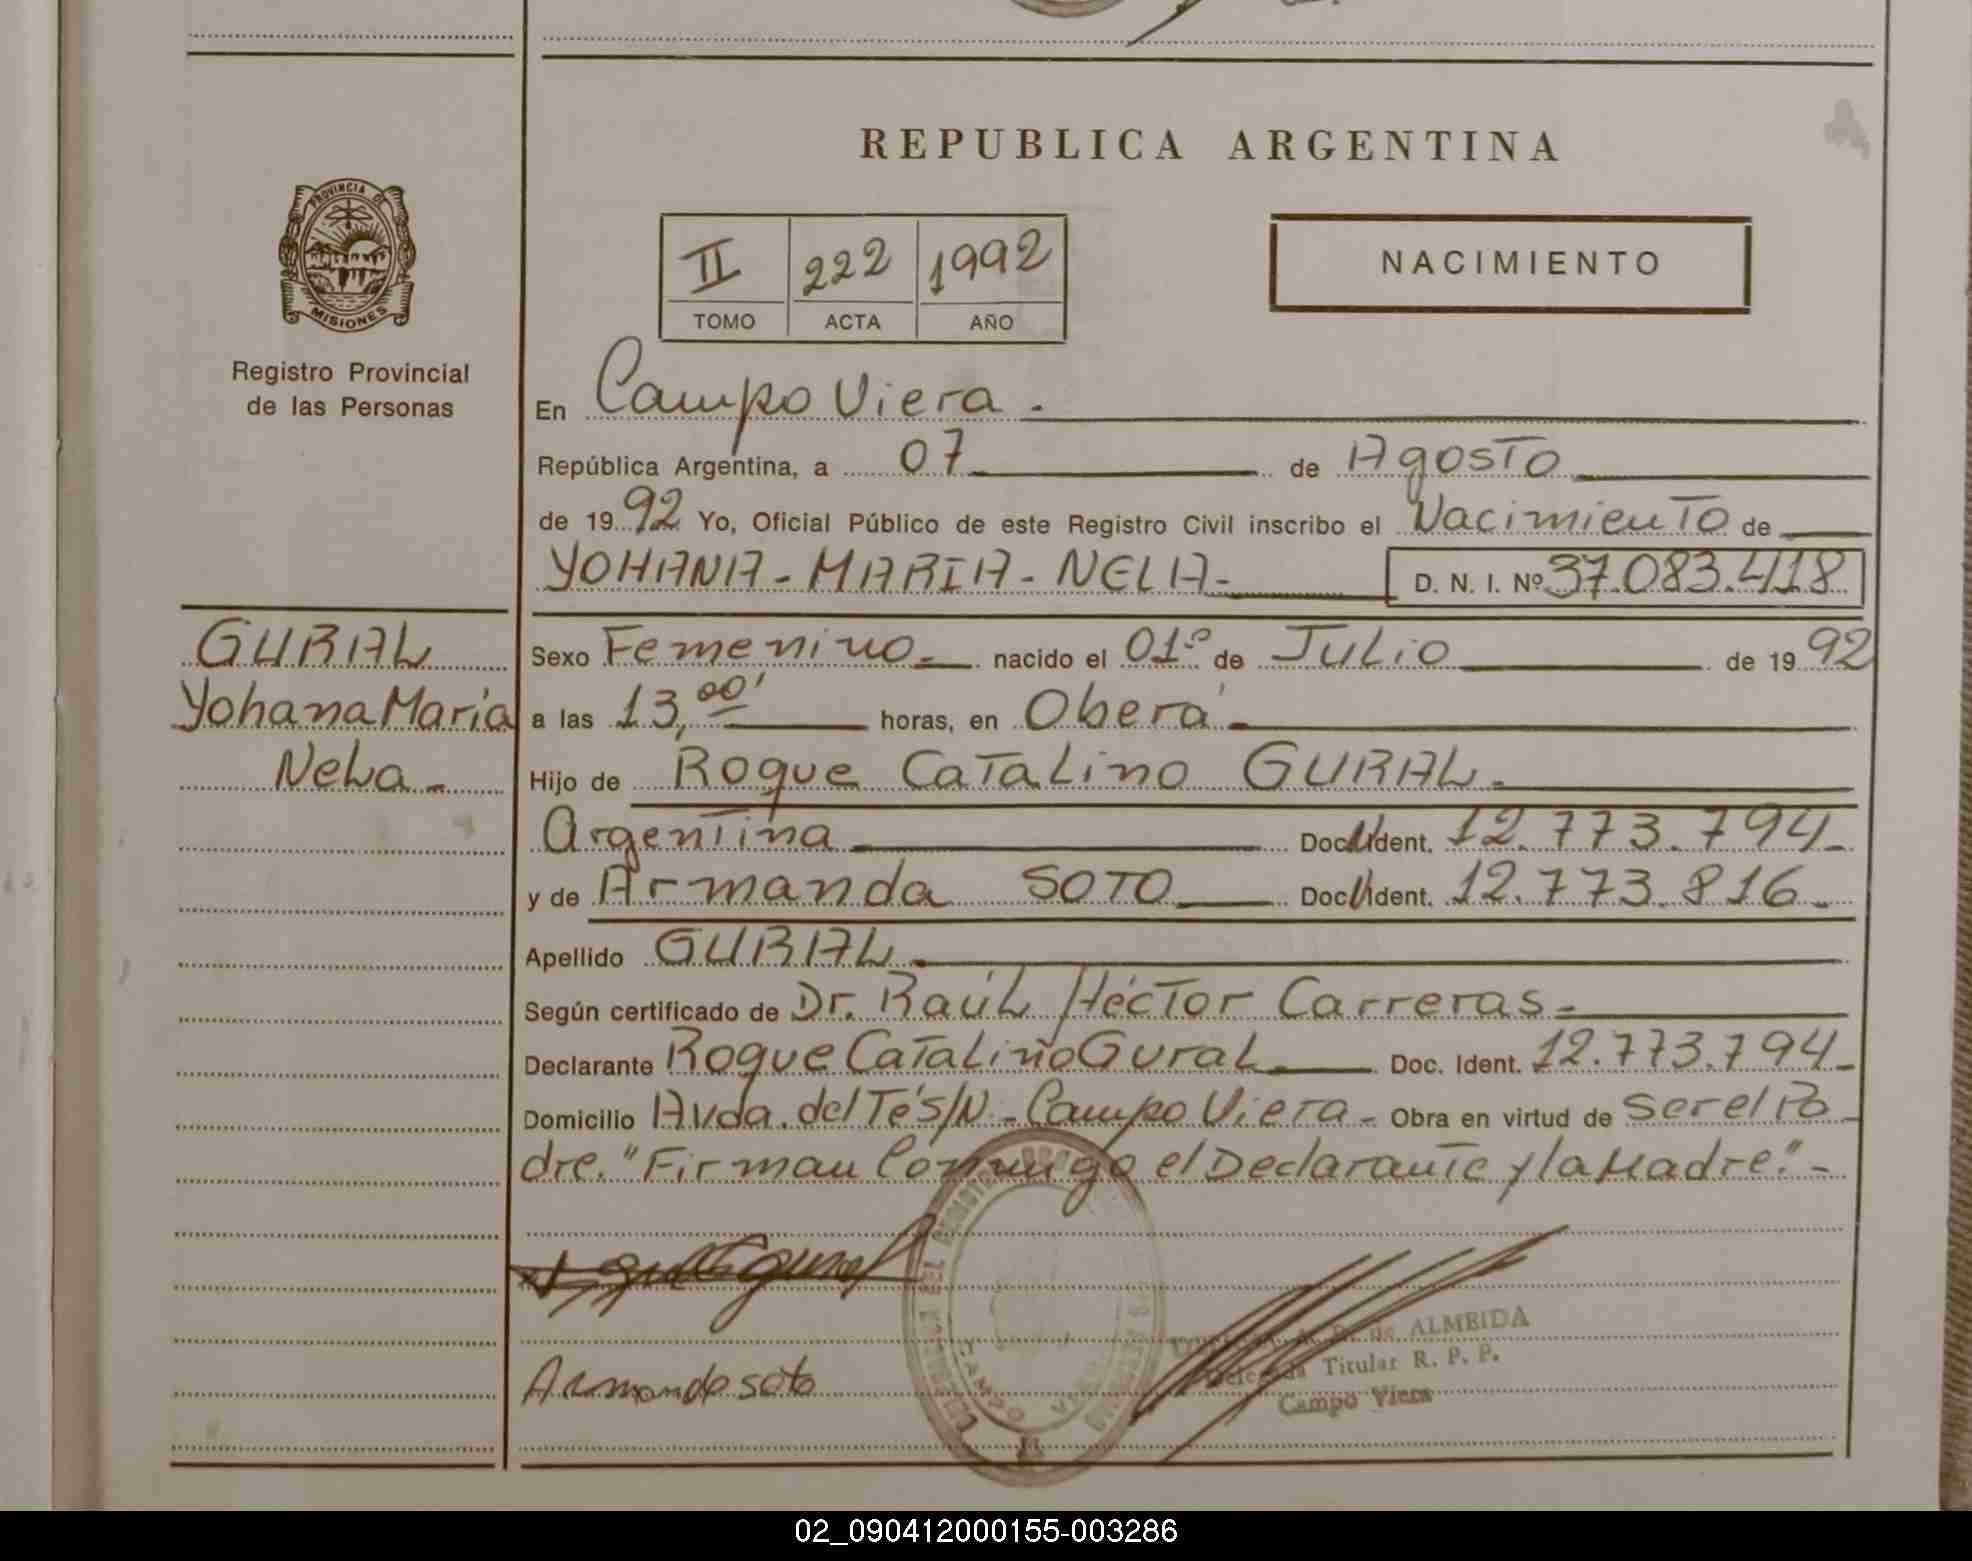 REPUBLICA ARGENTINA
PROVINCIA DE
MISIONES
Registro Provincial
de las Personas
II 222 1992
TOMO ACTA AÑO
NACIMIENTO
En Campo Viera.
República Argentina, a 07 de Agosto
de 1992 Yo, Oficial Público de este Registro Civil inscribo el Nacimiento de
YOHANA-MARIA-NELA- D. N. I. Nº 37.083.418
GURAL
Yohana María
Nela-
Sexo Femenino- nacido el 01º de Julio de 1992
a las 13,00' horas, en Oberá-
Hijo de Roque Catalino GURAL-
Argentina Doc. Ident. 12.773.794-
y de Armanda SOTO Doc. Ident. 12.773.816-
Apellido GURAL
Según certificado de Dr. Raúl Héctor Carreras-
Declarante Roque Catalino Gural Doc. Ident. 12.773.794-
Domicilio Avda. del Té S/N-Campo Viera- Obra en virtud de ser el Pa-
dre. "Firman Conmigo el Declarante y la Madre."-
Armanda soto
de ALMEIDA
Titular R. P. P.
Campo Viera
02_090412000155-003286